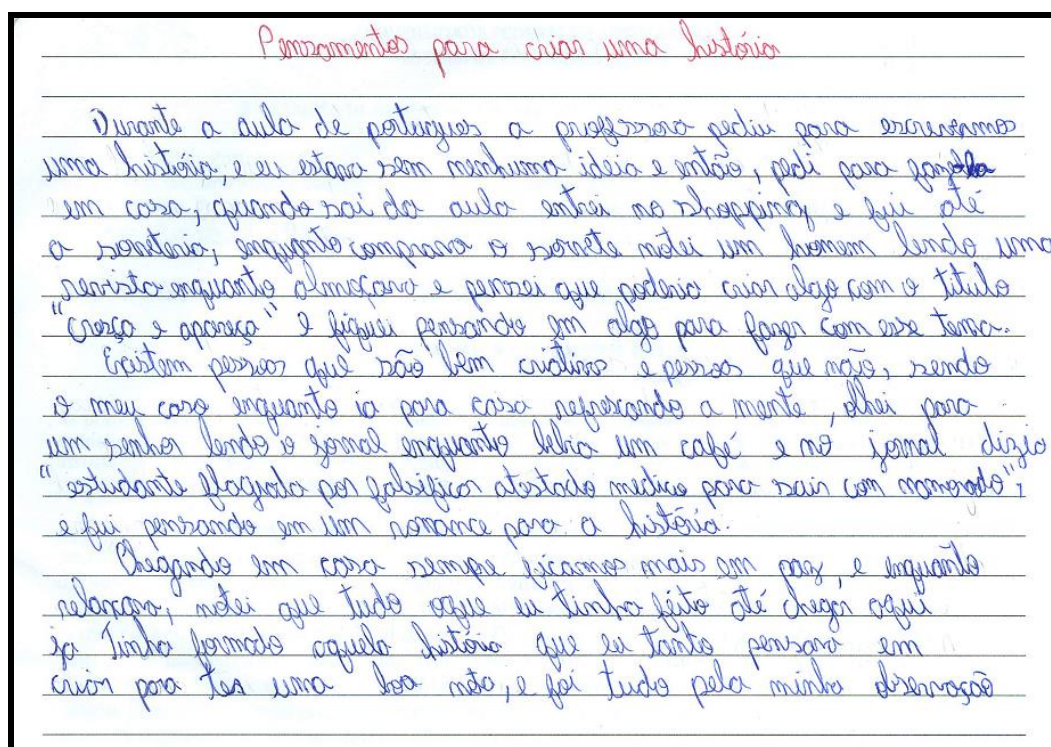 Pensamentos para criar uma história
Durante a aula de portugues a professora pediu para escrevermos
uma história, e eu estava sem nenhuma ideia e então, pedi para
em casa, quando sai da aula entrei no shopping e fui até
a sorveteria, enquanto comprava o sorvete notei um homem lendo uma
revista enquanto almoçava e pensei que poderia criar algo com o titulo
"cresça e apareça" e fiquei pensando em algo para fazer com esse tema.
Existem pessoas que são bem criativas e pessoas que não, sendo
o meu caso enquanto ia para casa refrescando a mente, olhei para
um senhor lendo o jornal enquanto bebia um café e no jornal dizia
"estudante flagrada por falsificar atestado medico para sair com namorado",
e fui pensando em um romance para a história.
Chegando em casa sempre ficamos mais em paz, e enquanto
relaxava, notei que tudo oque eu tinha feito até chegar aqui
ja tinha formado aquela história que eu tanto pensava em
criar para ter uma boa nota, e foi tudo pela minha observação